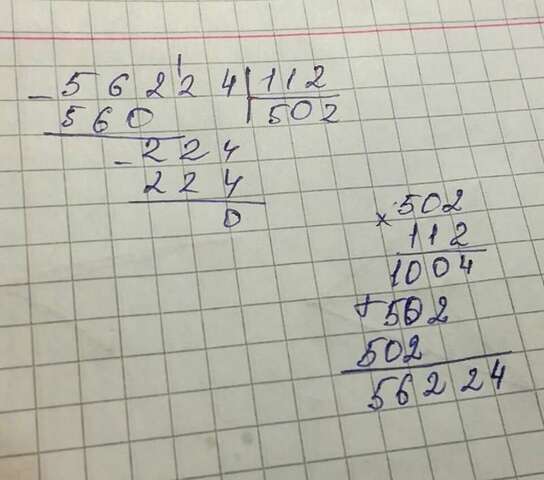 - 56224 | 112
560 | 502
- 224
224
0
× 502
112
1004
+ 502
502
56224